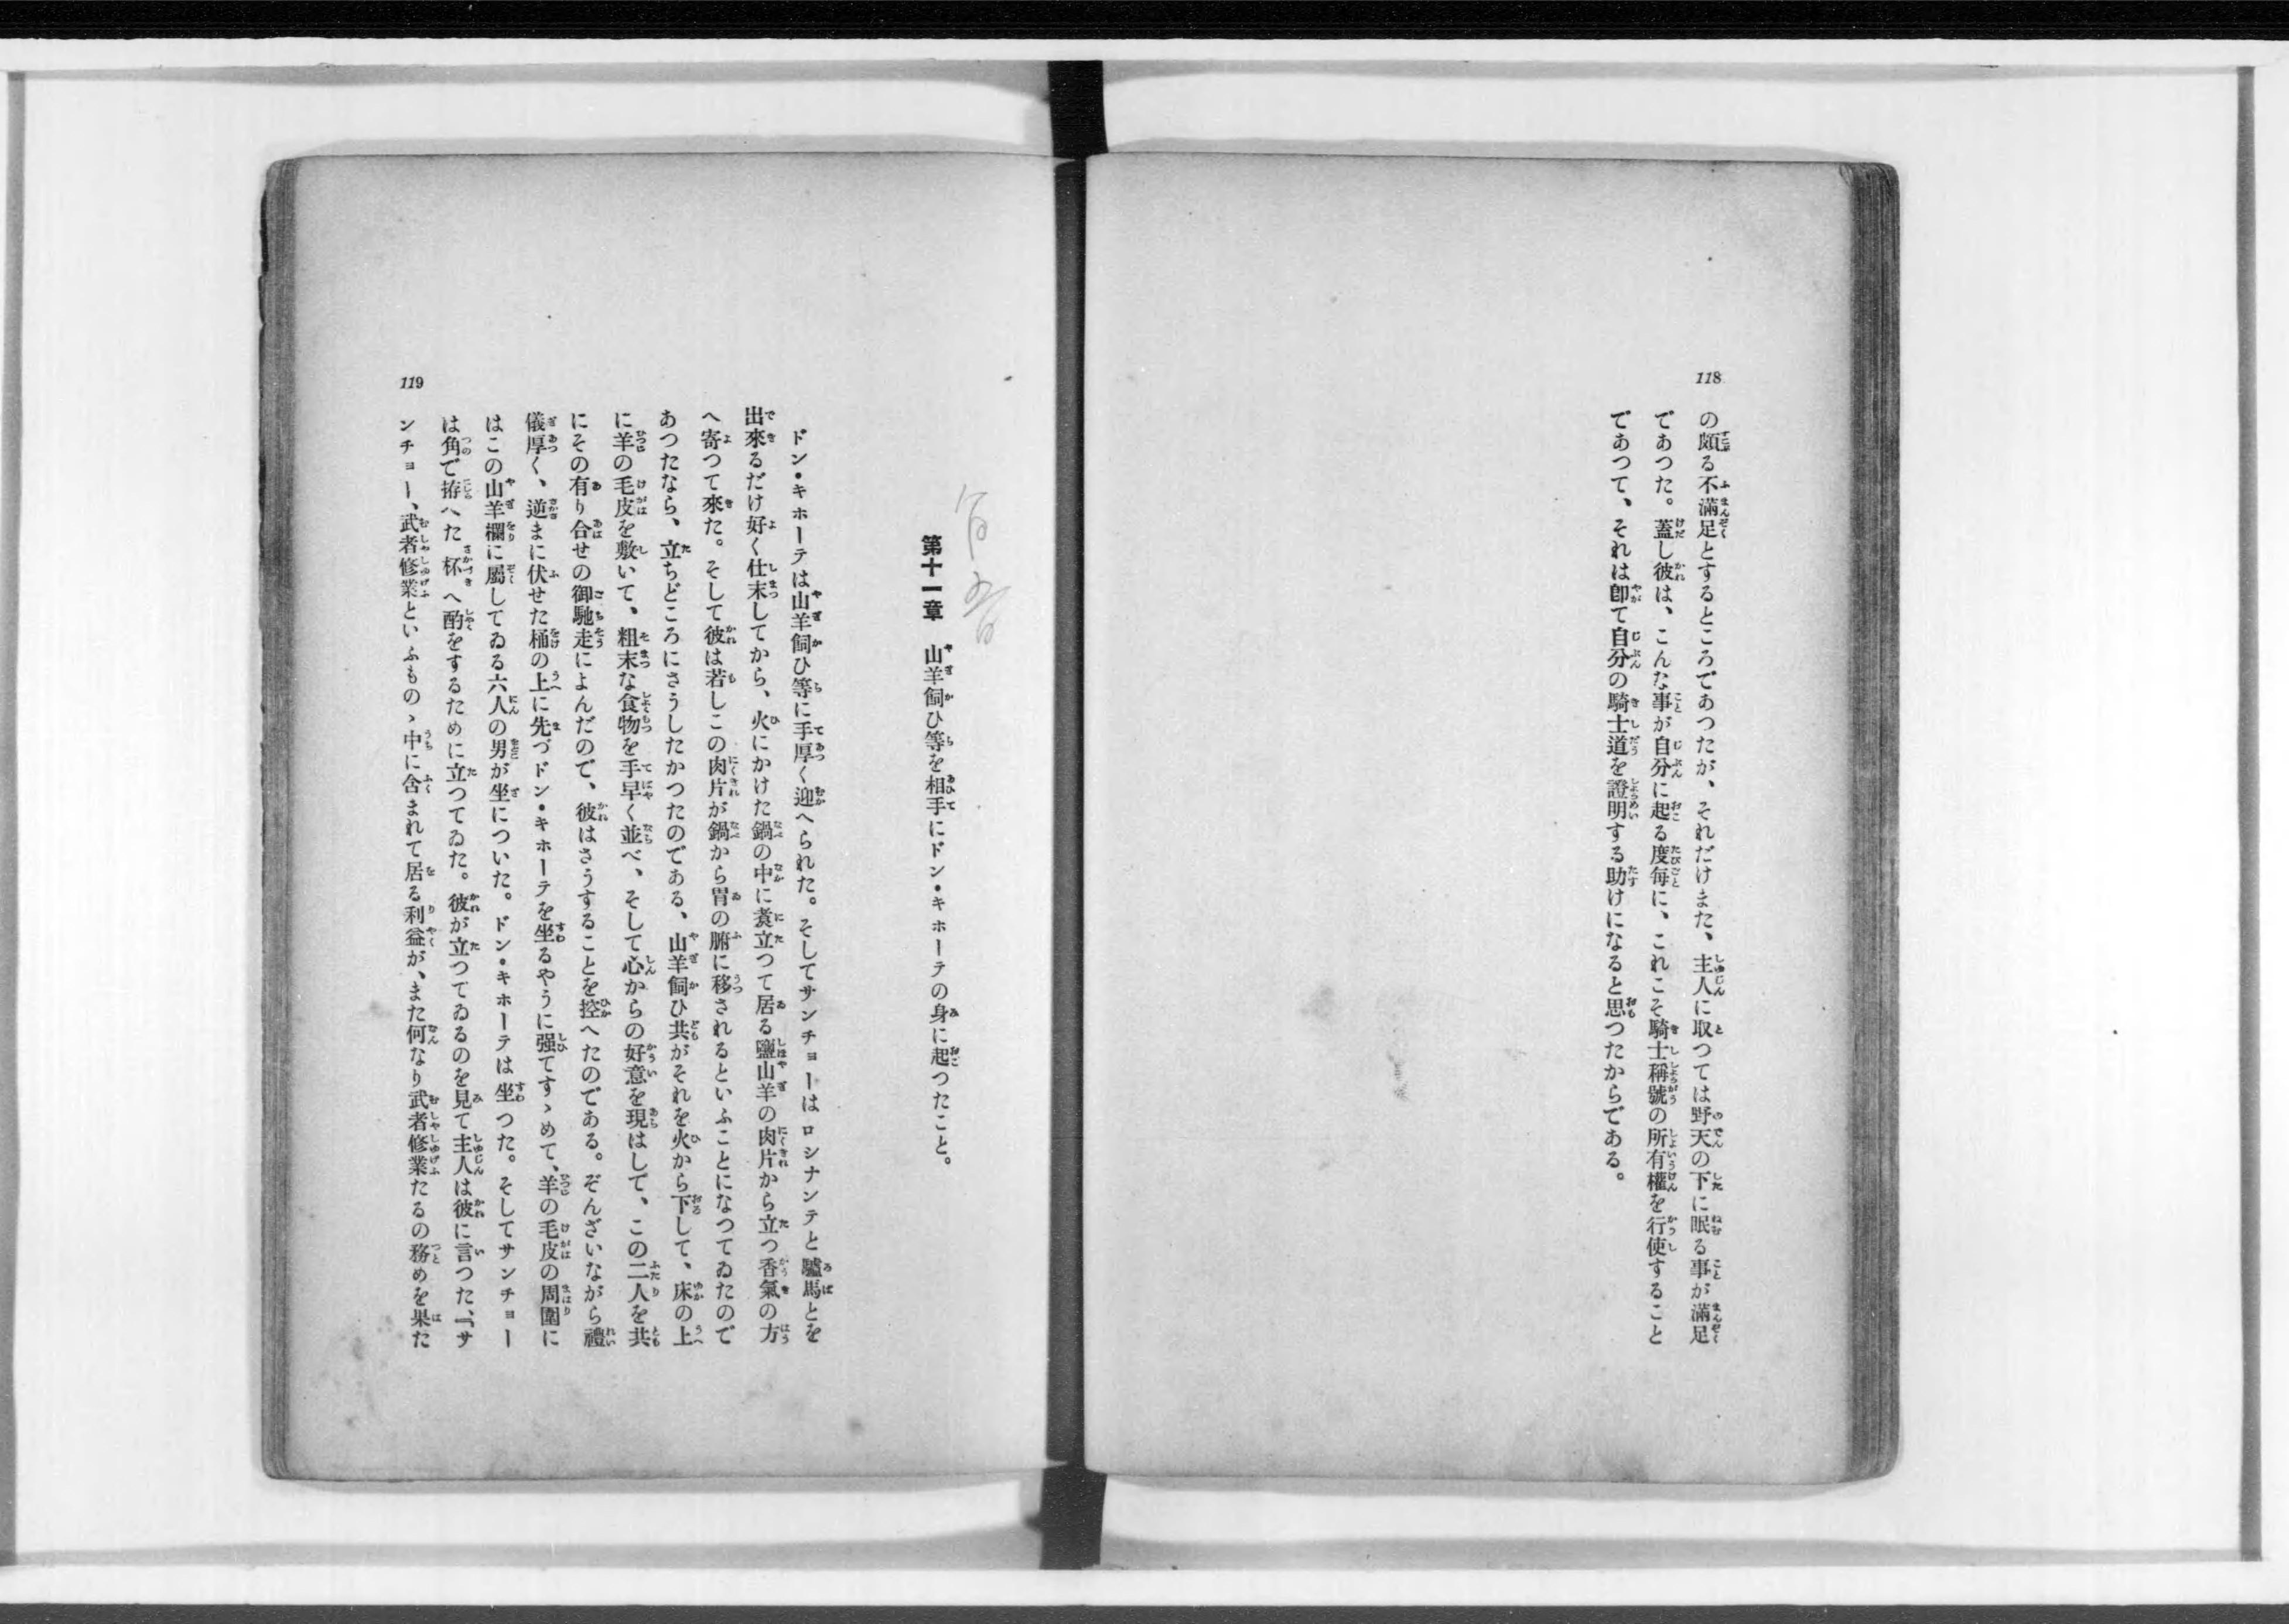 118
の頗る不滿足とするところであつたが、それだけまた、主人に取つては野天の下に眠る事が滿足
であつた。蓋し彼は、こんな事が自分に起る度每に、これこそ騎士稱號の所有權を行使すること
であつて、それは卽て自分の騎士道を證明する助けになると思つたからである。
第十一章　山羊飼ひ等を相手にドン・キホーテの身に起つたこと。
ドン・キホーテは山羊飼ひ等に手厚く迎へられた。そしてサンチョーはロシナンテと驢馬とを
出來るだけ好く仕末してから、火にかけた鍋の中に煑立つて居る鹽山羊の肉片から立つ香氣の方
へ寄つて來た。そして彼は若しこの肉片が鍋から胃の腑に移されるといふことになつてゐたので
あつたなら、立ちどころにさうしたかつたのである、山羊飼ひ共がそれを火から下して、床の上
に羊の毛皮を敷いて、粗末な食物を手早く並べ、そして心からの好意を現はして、この二人を共
にその有り合せの御馳走によんだので、彼はさうすることを控へたのである。ぞんざいながら禮
儀厚く、逆まに伏せた桶の上に先づドン・キホーテを坐るやうに强てすゝめて、羊の毛皮の周圍に
はこの山羊欄に屬してゐる六人の男が坐についた。ドン・キホーテは坐つた。そしてサンチョー
は角で拵へた杯へ酌をするために立つてゐた。彼が立つてゐるのを見て主人は彼に言つた、『サ
ンチョー、武者修業といふものゝ中に含まれて居る利益が、また何なり武者修業たるの務めを果た
119